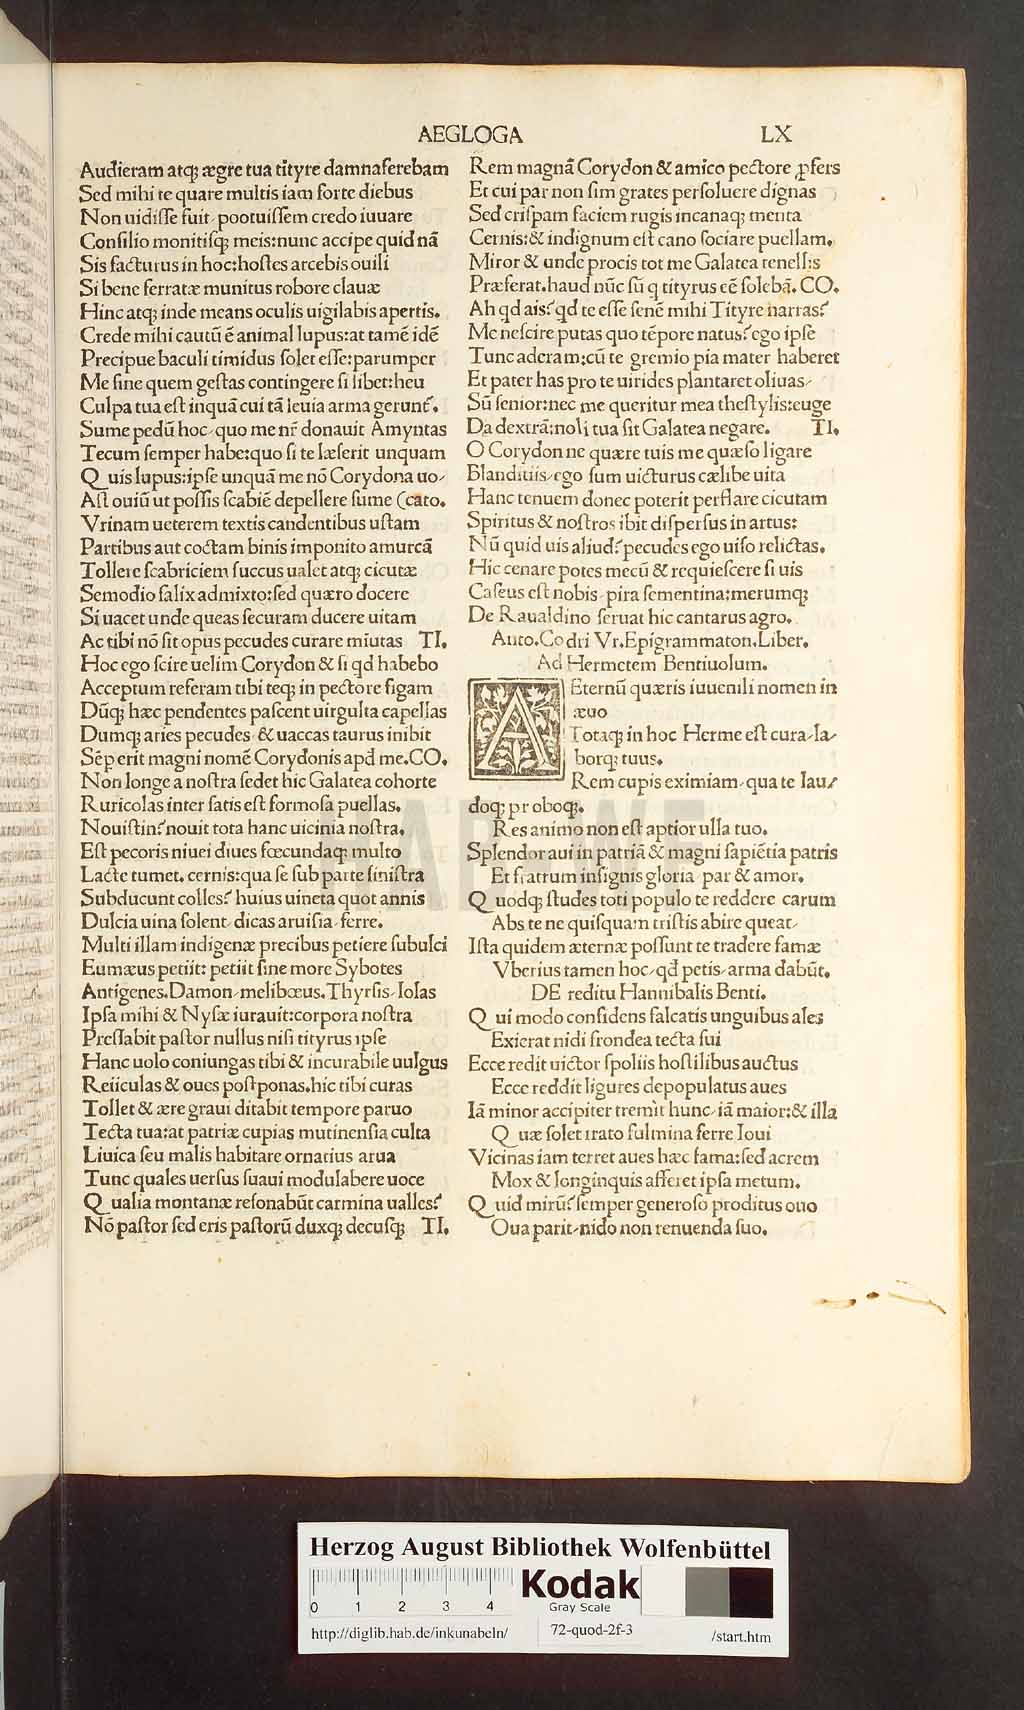 AEGLOGA LX
Audieram atq; ægre tua tityre damna ferebam
Sed mihi te quare multis iam forte diebus
Non uidiſſe fuit, pootuiſſem credo iuuare
Conſilio monitiſq; meis:nunc accipe quid nã
Sis facturus in hoc:hoſtes arcebis ouili
Si bene ferratæ munitus robore clauæ
Hinc atq; inde means oculis uigilabis apertis.
Crede mihi cautũ ē animal lupus:at tamē idē
Precipue baculi timidus ſolet eſſe:parumper
Me ſine quem geſtas contingere ſi libet:heu
Culpa tua eſt inquã cui tã leuia arma gerunt᷑.
Sume pedũ hoc, quo me nr̃ donauit Amyntas
Tecum ſemper habe:quo ſi te læſerit unquam
Quis lupus:ipſe unquã me nõ Corydona uo/
Aſt ouiũ ut poſſis ſcabiē depellere ſume (cato.
Vrinam ueterem textis candentibus uſtam
Partibus aut coctam binis imponito amurcã
Tollere ſcabriciem ſuccus ualet atq; cicutæ
Semodio ſalix admixto:ſed quæro docere
Si uacet unde queas ſecuram ducere uitam
Ac tibi nõ ſit opus pecudes curare miutas TI.
Hoc ego ſcire uelim Corydon & ſi qd habebo
Acceptum referam tibi teq; in pectore figam
Dũq; hæc pendentes paſcent uirgulta capellas
Dumq; aries pecudes, & uaccas taurus inibit
Sēp erit magni nomē Corydonis apd me.CO.
Non longe a noſtra ſedet hic Galatea cohorte
Ruricolas inter ſatis eſt formoſa puellas.
Nouiſtin?nouit tota hanc uicinia noſtra.
Eſt pecoris niuei diues fœcundaq; multo
Lacte tumet. cernis:qua ſe ſub parte ſiniſtra
Subducunt colles? huius uineta quot annis
Dulcia uina ſolent, dicas aruiſia, ferre.
Multi illam indigenæ precibus petiere ſubulci
Eumæus petiit: petiit ſine more Sybotes
Antigenes.Damon, melibœus.Thyrſis, Iolas
Ipſa mihi & Nyſæ iurauit:corpora noſtra
Preſſabit paſtor nullus niſi tityrus ipſe
Hanc uolo coniungas tibi & incurabile uulgus
Reiiculas & oues poſtponas.hic tibi curas
Tollet & ære graui ditabit tempore paruo
Tecta tua:at patriæ cupias mutinenſia culta
Liuica ſeu malis habitare ornatius arua
Tunc quales uerſus ſuaui modulabere uoce
Qualia montanæ reſonabũt carmina ualles?
Nõ paſtor ſed eris paſtorũ duxq; decuſq; TI.
Rem magnã Corydon & amico pectore ꝓfers
Et cui par non ſim grates perſoluere dignas
Sed criſpam faciem rugis incanaq; menta
Cernis:& indignum eſt cano ſociare puellam.
Miror & unde procis tot me Galatea tenellis
Præferat.haud nũc ſũ q tityrus eē ſolebã. CO.
Ah qd ais?qd te eſſe ſenē mihi Tityre narras?
Me neſcire putas quo tēpore natus?ego ipſe
Tunc aderam:cũ te gremio pia mater haberet
Et pater has pro te uirides plantaret oliuas,
Sũ ſenior:nec me queritur mea theſtylis:euge
Da dextrã:noli tua ſit Galatea negare. TI.
O Corydon ne quære tuis me quæſo ligare
Blanditiis, ego ſum uicturus cælibe uita
Hanc tenuem donec poterit perflare cicutam
Spiritus & noſtros ibit diſperſus in artus:
Nũ quid uis aliud?pecudes ego uiſo relictas.
Hic cenare potes mecũ & requieſcere ſi uis
Caſeus eſt nobis, pira ſementina:merumq;
De Raualdino ſeruat hic cantarus agro.
Anto.Codri Vr.Epigrammaton.Liber.
Ad Hermetem Bentiuolum.
AEternũ quæris iuuenili nomen in
æuo
Totaq; in hoc Herme eſt cura, la/
borq; tuus.
Rem cupis eximiam, qua te lau/
doq; proboq;.
Res animo non eſt aptior ulla tuo.
Splendor aui in patriã & magni ſapiētia patris
Et fratrum inſignis gloria, par & amor.
Quodq; ſtudes toti populo te reddere carum
Abs te ne quiſquam triſtis abire queat,
Iſta quidem æternæ poſſunt te tradere famæ
Vberius tamen hoc, qd petis, arma dabũt.
DE reditu Hannibalis Benti.
Qui modo confidens falcatis unguibus ales
Exierat nidi frondea tecta ſui
Ecce redit uictor ſpoliis hoſtilibus auctus
Ecce reddit ligures depopulatus aues
Iã minor accipiter tremit hunc, iã maior:& illa
Quæ ſolet irato fulmina ferre Ioui
Vicinas iam terret aues hæc fama:ſed acrem
Mox & longinquis afferet ipſa metum.
Quid mirũ?ſemper generoſo proditus ouo
Oua parit, nido non renuenda ſuo.
HAB WF
Herzog August Bibliothek Wolfenbüttel
0 1 2 3 4
Kodak
Gray Scale
http://diglib.hab.de/inkunabeln/ 72-quod-2f-3 /start.htm